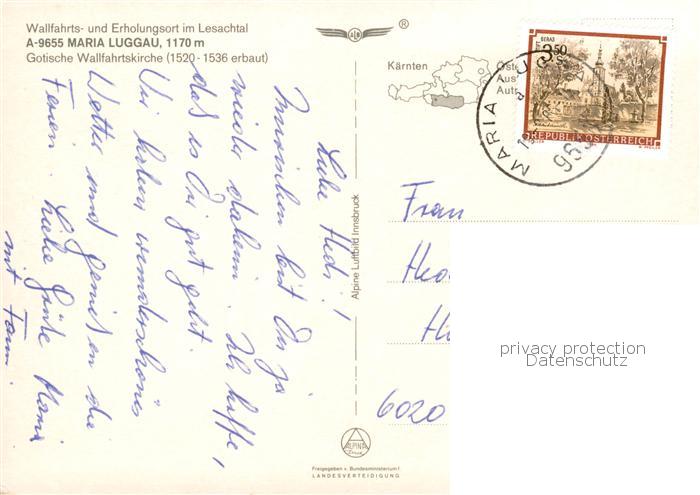 Wallfahrts- und Erholungsort im Lesachtal
A-9655 MARIA LUGGAU, 1170 m
Gotische Wallfahrtskirche (1520-1536 erbaut)
®
Kärnten
Öste
Aus
Autr
GERAS
3.50
S
REPUBLIK ÖSTERREICH
MARIA LUGGAU
965
Liebe Hedi!
Inzwischen bist Du ja
wieder daheim. Ich hoffe,
daß es Dir gut geht.
Wir haben wunderschönes
Wetter und genießen die
Ferien. Liebe Grüße Maria
mit Fam.
Alpine Luftbild Innsbruck
Frau
6020
privacy protection
Datenschutz
ALPINE
Freigegeben v. Bundesministerium f.
LANDESVERTEIDIGUNG